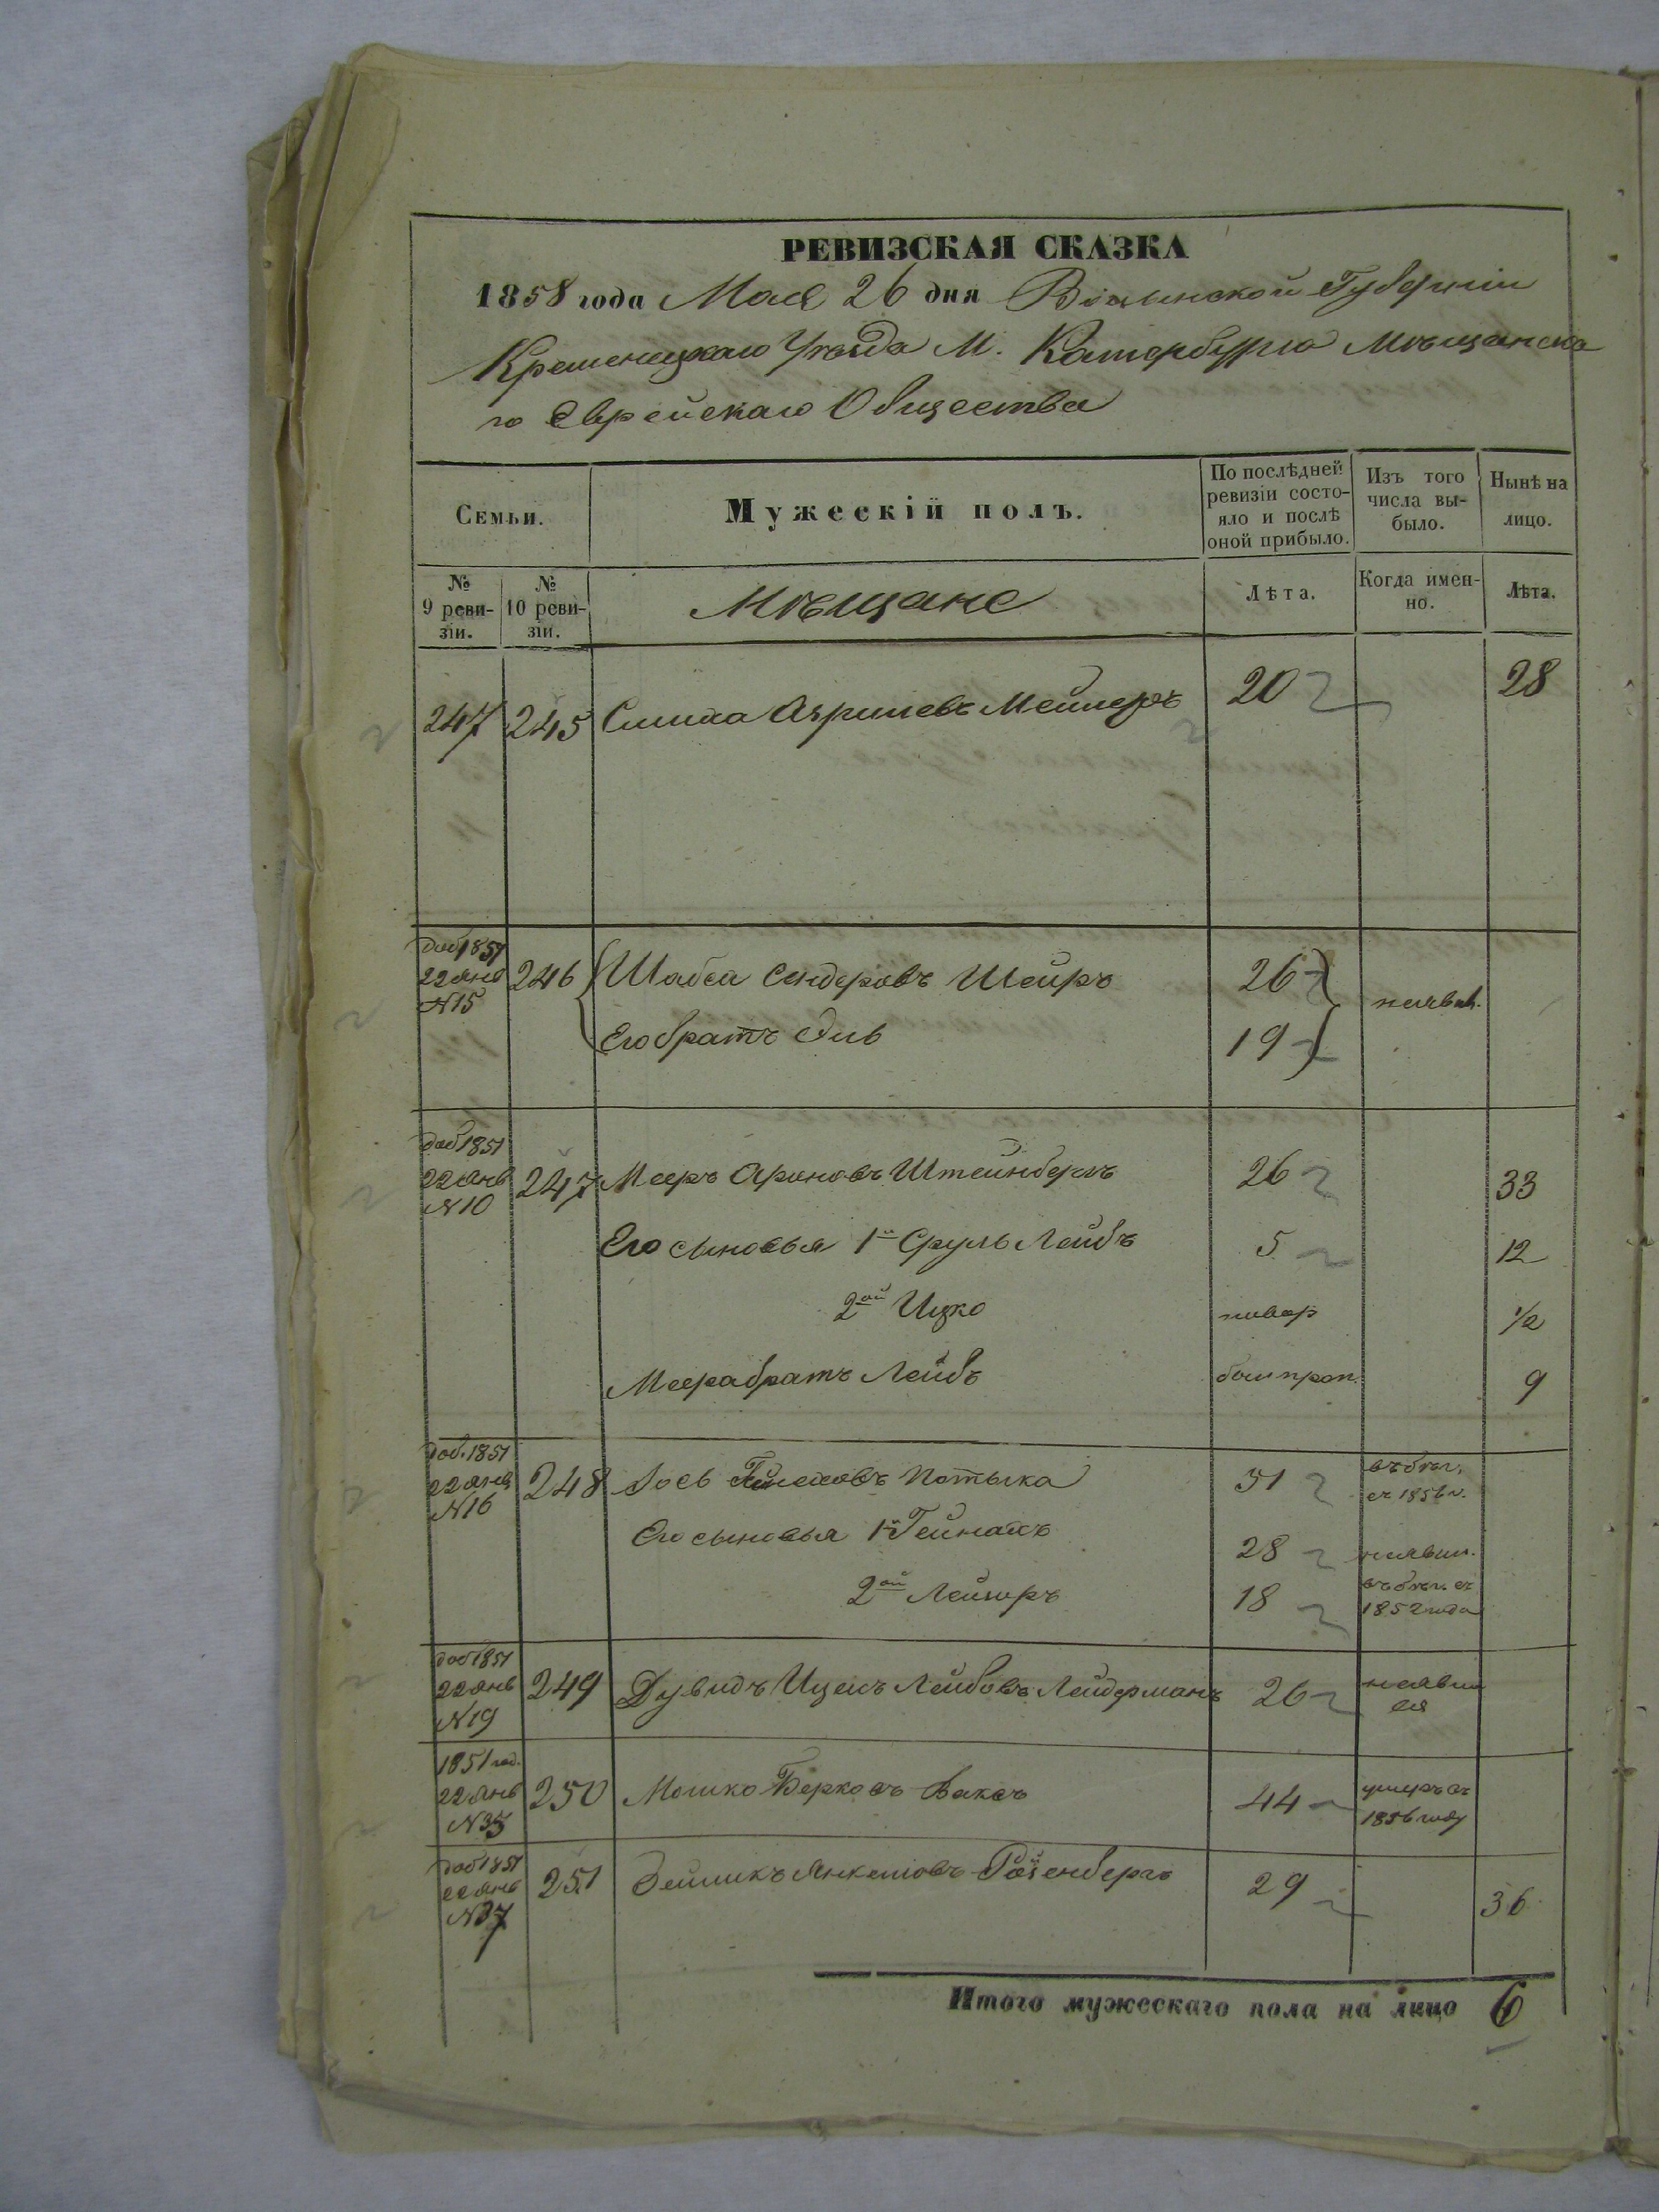 РЕВИЗСКАЯ СКАЗКА
1858 года Мая 26 дня Волынской Губерніи
Кременецкаго Уѣзда М. Катербурга Мѣщанска
го Еврейскаго Общества
Семьи.
Мужескій полъ.
По послѣдней ревизіи состояло и послѣ оной прибыло.
Изъ того числа выбыло.
Нынѣ на лицо.
№ 9 ревизіи.
№ 10 ревизіи.
Мѣщане
Лѣта.
Когда именно.
Лѣта.
247 245 Симха Мейлеръ 20 28
доб 1851
22 янв 246 Шабса Сендеровъ Шейръ 26 неявил.
N 15
Его братъ Эль 19
доб 1851
22 янв 247 Мееръ Ароновъ Штейнбергъ 26 33
N 10
Его сыновья 1й Сруль Лейбъ 5 12
2ой Ицко 1/2
Меера братъ Лейбъ был проп. 9
доб. 1851
22 янв 248 Іось Потыка 51 въ бѣг. съ 1856 г.
N 16
Его сыновья 1й Гейнахъ 28 неявил.
2ой Лейзоръ 18 въ бѣг. съ 1852 года
доб 1851
22 янв 249 Дувидъ Ицекъ Лейбовъ Лейдерманъ 26 неявился
N 19
1851 год.
22 янв 250 Мошко Берковъ Ваксъ 44 умеръ въ 1856 году
N 35
доб 1851
22 янв 251 Зейликъ Янкелювъ Розенбергъ 29 36
N 37
Итого мужескаго пола на лицо 6